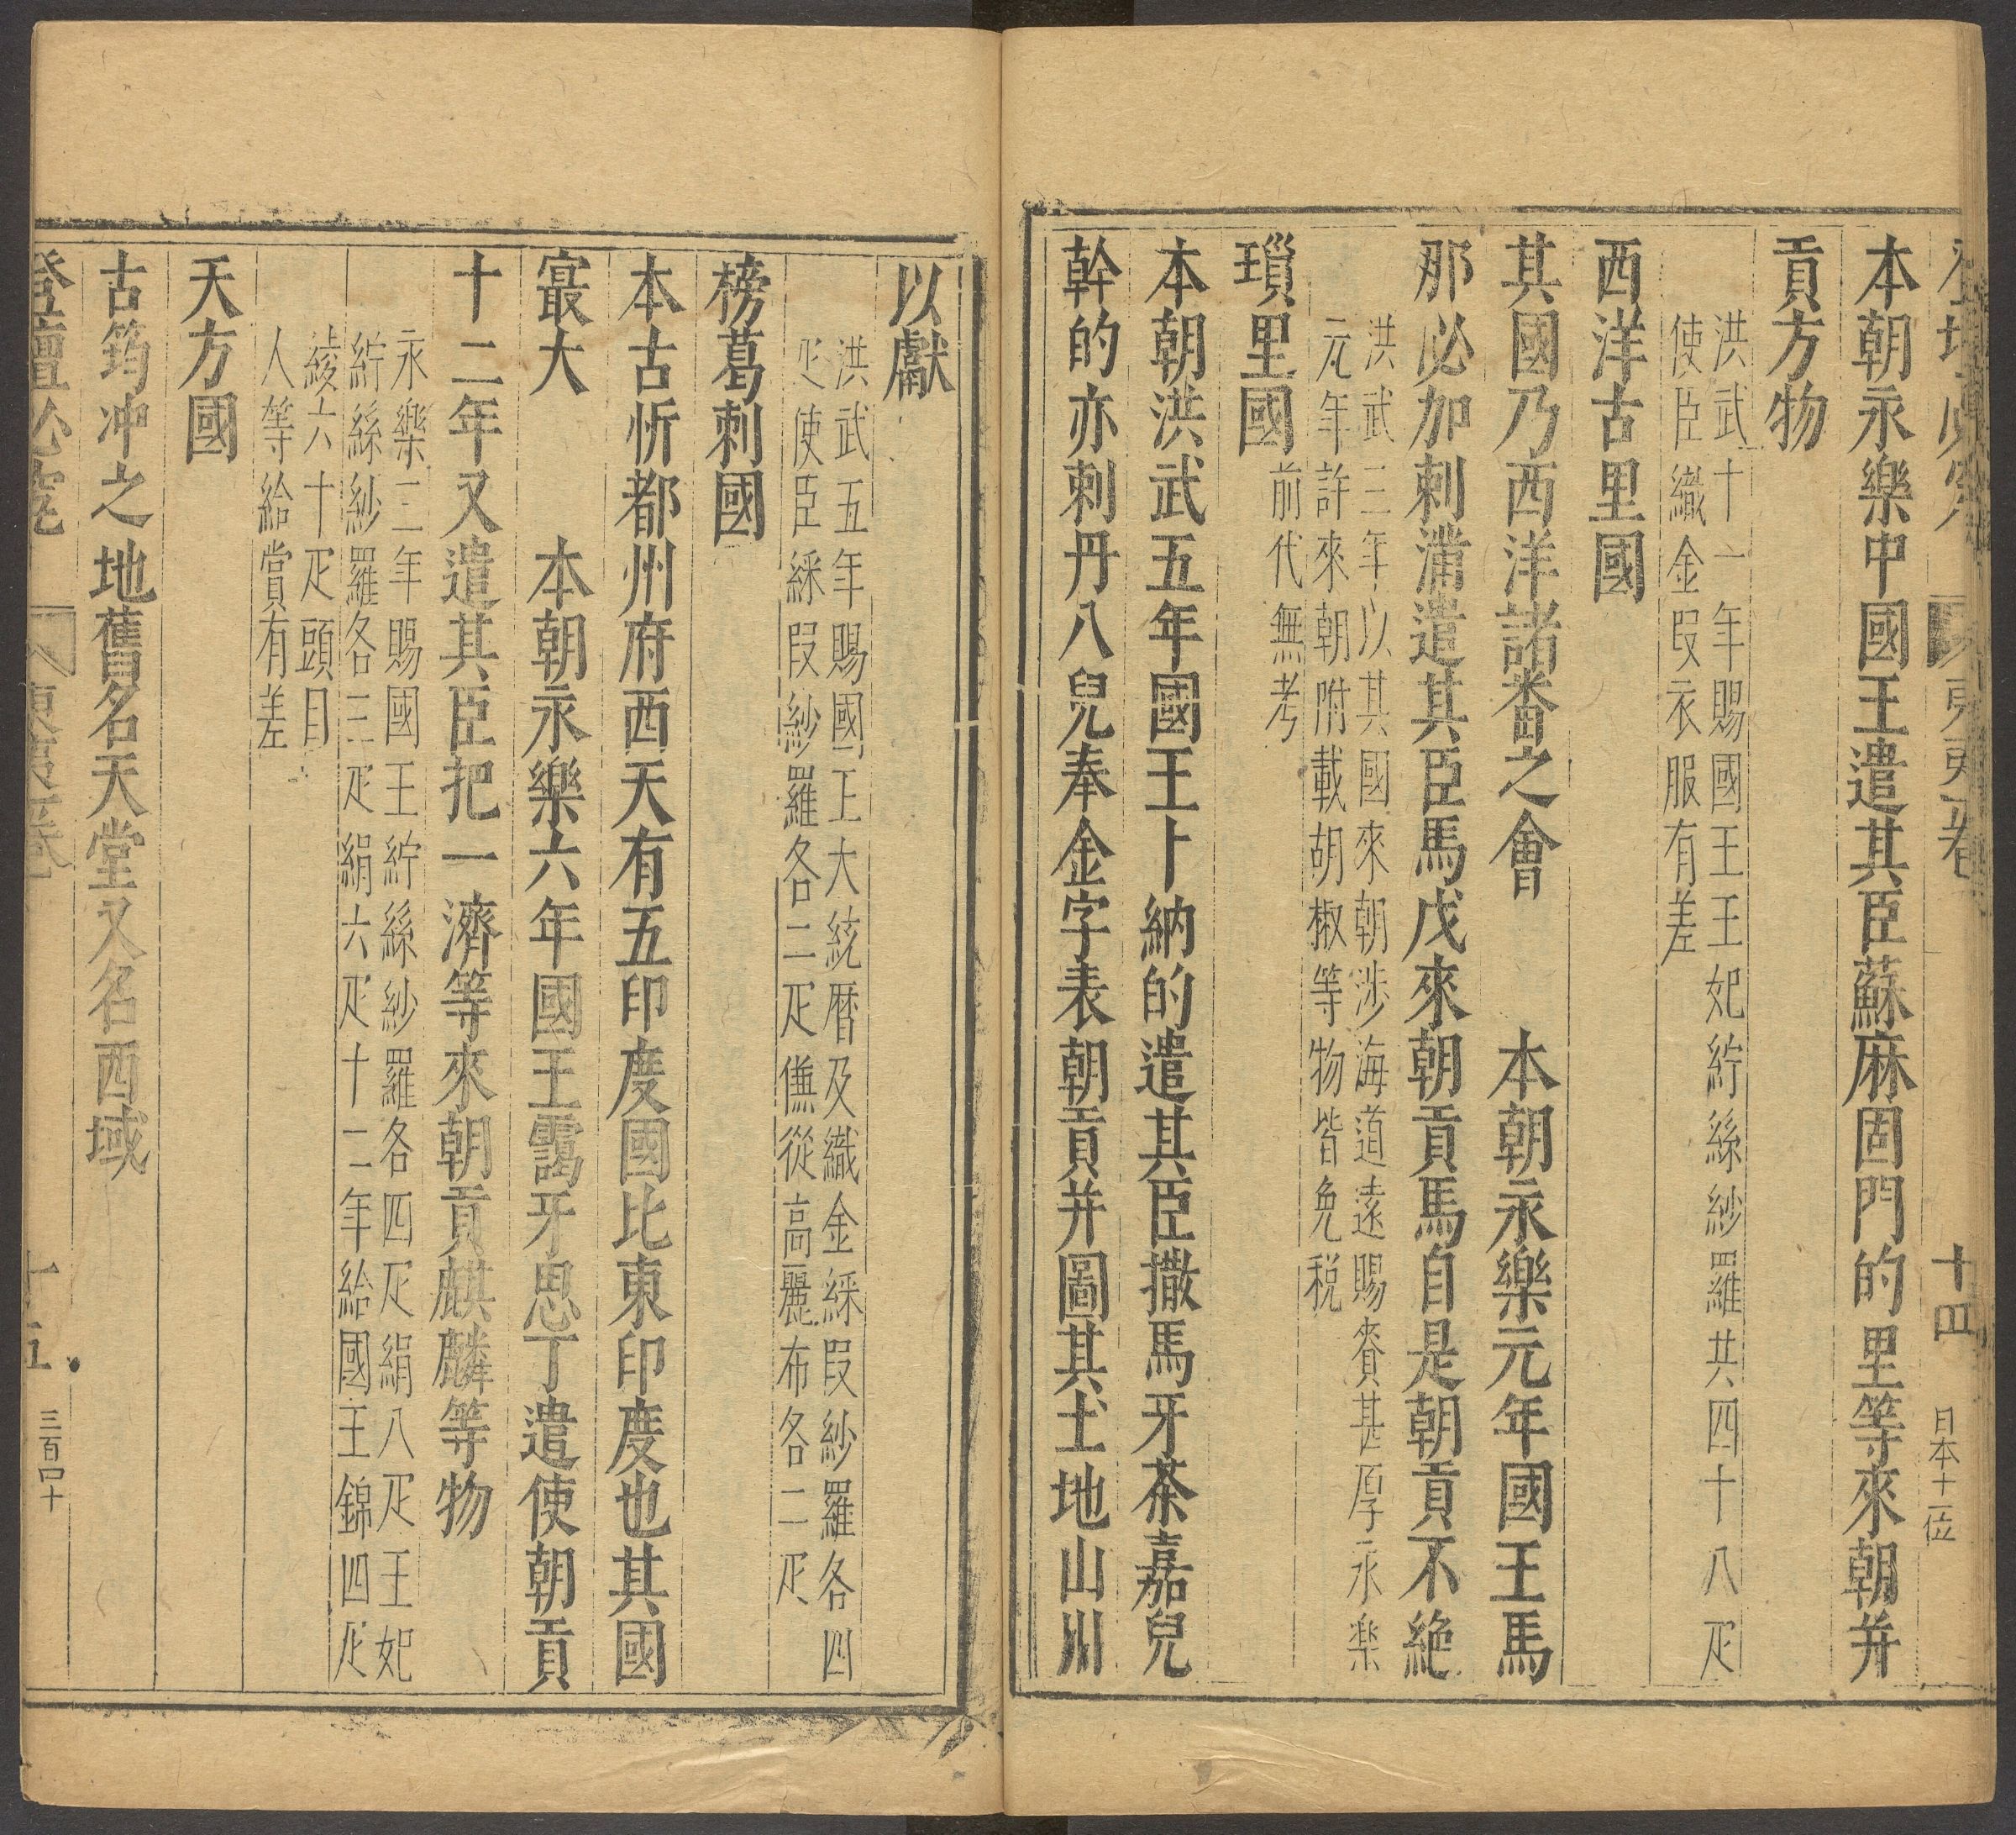 登壇必究
東夷卷
十四
日本十一位
本朝永樂中國王遣其臣蘇麻固門的里等來朝并
貢方物
洪武十一年賜國王王妃紵絲紗羅共四十八疋
使臣織金叚衣服有差
西洋古里國
其國乃西洋諸番之會　本朝永樂元年國王馬
那必加剌滿遣其臣馬戊來朝貢馬自是朝貢不絶
洪武三年以其國來朝涉海道遠賜賚甚厚永樂
元年許來朝附載胡椒等物皆免税
瑣里國
前代無考
本朝洪武五年國王卜納的遣其臣撒馬牙茶嘉兒
幹的亦剌丹八兒奉金字表朝貢并圖其土地山川
以獻
洪武五年賜國王大統曆及織金綵叚紗羅各四
疋使臣綵叚紗羅各二疋傔從高麗布各二疋
榜葛剌國
本古忻都州府西天有五印度國比東印度也其國
寂大　本朝永樂六年國王靄牙思丁遣使朝貢
十二年又遣其臣把一濟等來朝貢麒麟等物
永樂三年賜國王紵絲紗羅各四疋絹八疋王妃
紵絲紗羅各三疋絹六疋十二年給國王錦四疋
綾六十疋頭目
人等給賞有差
天方國
古筠冲之地舊名天堂又名西域
登壇必究
東夷卷
十五
三百四十